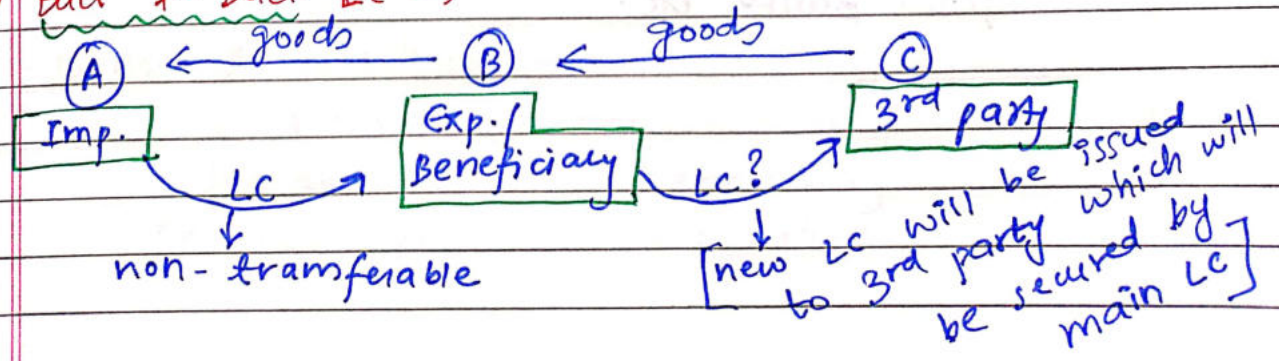 goods goods
A B C
Imp. Exp./ 3rd party
Beneficiary
LC LC?
non-transferable
[new LC will be issued
to 3rd party which will
be secured by
main LC]